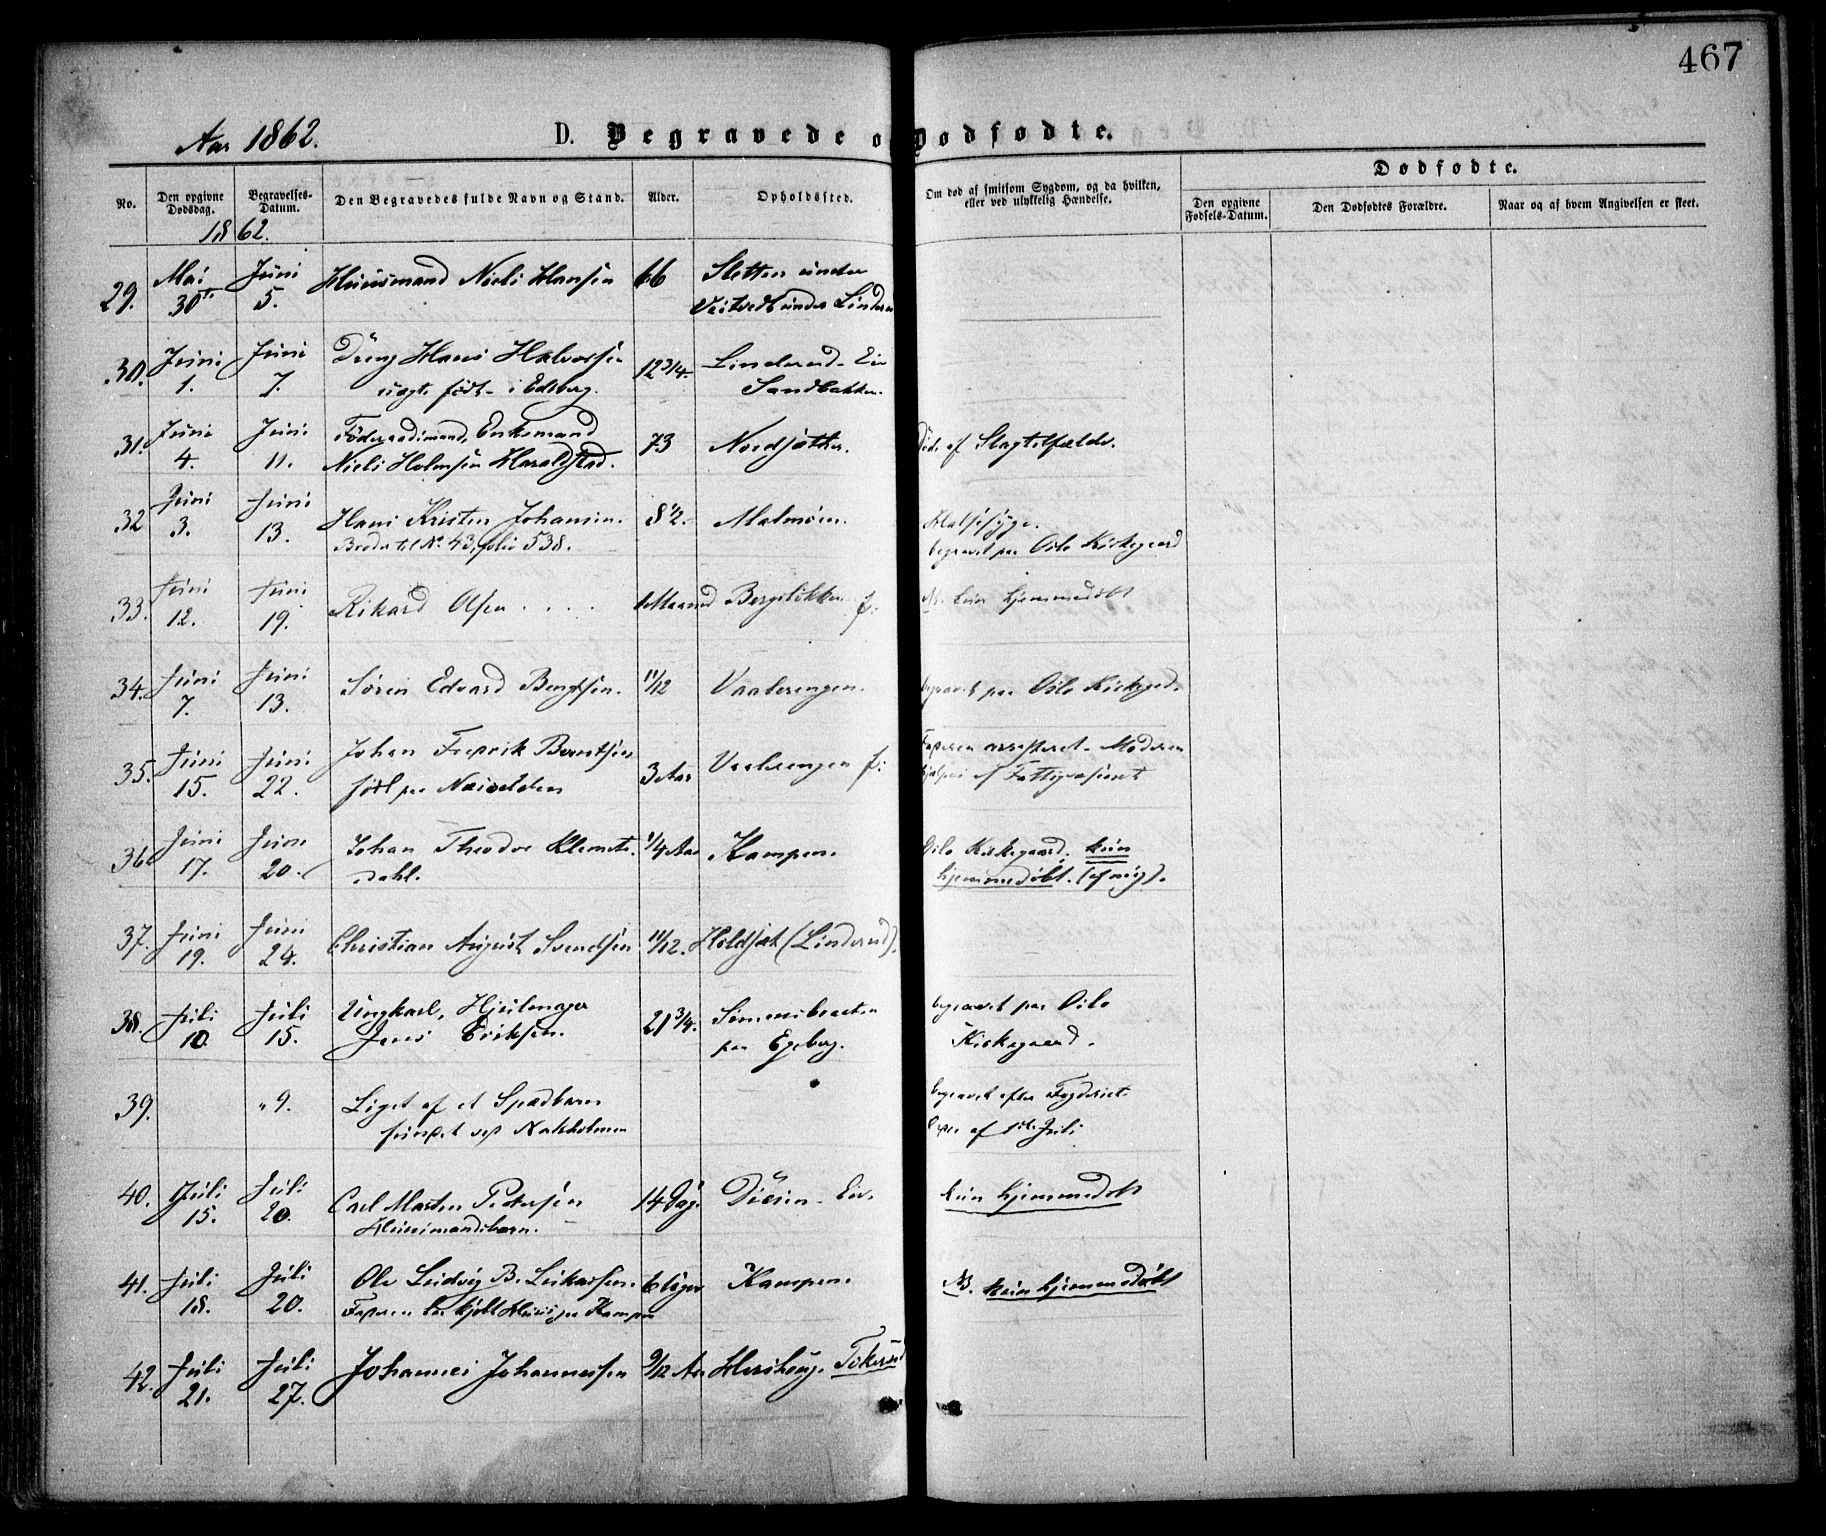 467
Aar 1862.
D. Begravede og Dødfødte.
No.
Den opgivne Dødsdag.
Begravelses-Datum.
Den Begravedes fulde Navn og Stand.
Alder.
Opholdssted.
Om død af smitsom Sygdom, og da hvilken, eller ved ulykkelig Hændelse.
Dødfødte.
Den opgivne Fødsels-Datum.
Den Dødfødtes Forældre.
Naar og af hvem Angivelsen er skeet.
1862.
29. Mai 30te Juni 5. Huusmand Niels Hansen 66 Sletten under
Veitvedt under Linderud
30. Juni 1. Juni 7. Dreng Hans Halvorsen 12 3/4. Linderud Eie
uægte født i Edsberg. Sandbakken.
31. Juni 4. Juni 11. Føderaadsmand, Enkemand 73 Nordjathen. Døde af Slagtilfælde.
Niels Holmsen Haraldstad.
32 Juni 3. Juni 13. Hans Kristen Johansen. 8 1/2. Malmøen.
Broder til No. 43, folio 538.
Halssyge.
begravet paa Oslo Kirkegaard
33. Juni 12. Juni 19. Rikard Olsen .... 1 Maaned Bergsløkken f: NB. kun hjemmedøbt
34. Juni 7. Juni 13. Søren Edvard Bengtsen. 11/12 Vaalerengen. begravet paa Oslo Kirkegd.
35. Juni 15. Juni 22. Johan Fredrik Berntsen 3 Aar Vaalerengen f: Faderen arresteret. Moderen
født paa Næsodden hjelpes af Fattigvæsenet
36 Juni 17. Juni 20. Johan Theodor Klemets- 1/4 Aar Kampen. Oslo Kirkegaard. kun
dahl. hjemmedøbt. (af mig).
37. Juni 19. Juni 24. Christian August Svendsen 11/12. Holdsjat (Linderud).
38. Juli 10. Juli 15. Ungkarl, Hjulmager 21 3/4. Simensbraaten begravet paa Oslo
Jens Eriksen. paa Egeberg. Kirkegaard.
39. " 9. Liget af et Spædbarn begravet efter Fogderiets
fundet ved Nakholmen af 1ste Juli
40. Juli 15. Juli 20. Carl Martin Petersen 14 Dag. Disen Eie. kun hjemmedøbt
Huusmandsbarn.
41. Juli 18. Juli 20. Ole Ludvig B. Lukassen. 6 Uger Kampen. NB. kun hjemmedøbt
Faderen har kjøbt Huus paa Kampen
42. Juli 21. Juli 27. Johannes Johannessen 9/12 Aar Hersloug. Tokerud